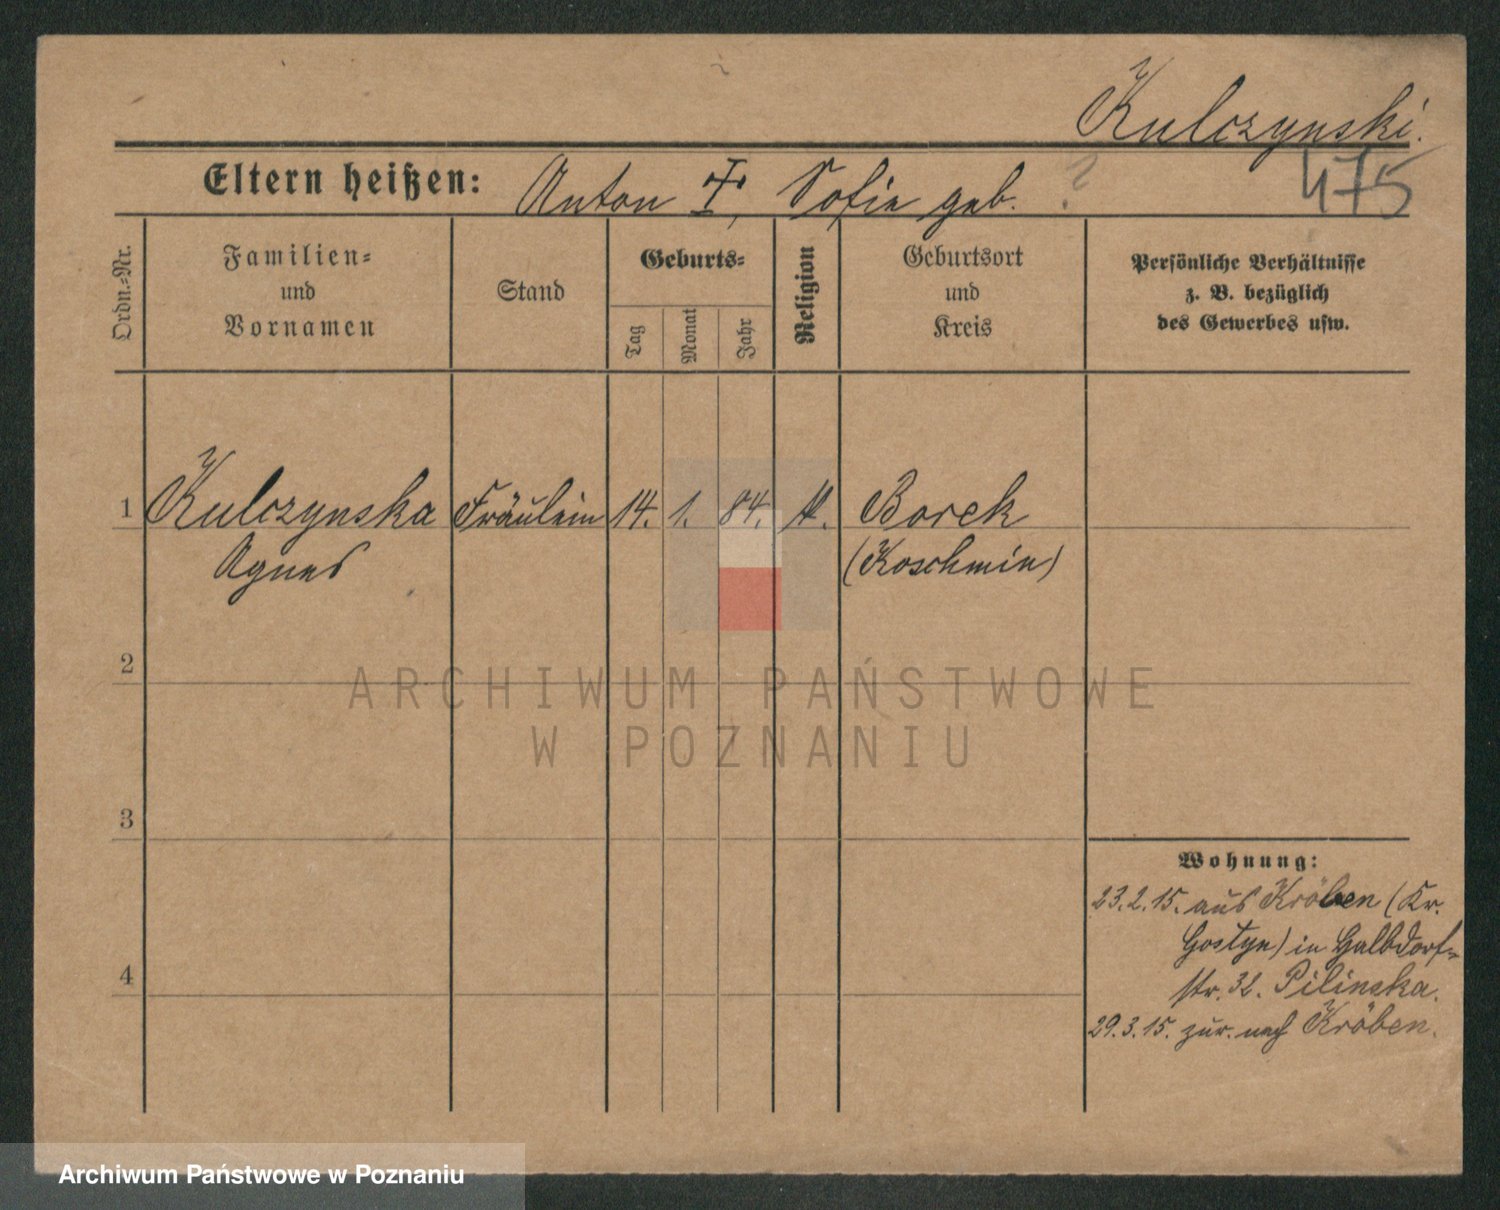 Kulczynski.
475
Eltern heißen: Anton †, Sofie geb. ?
Ordn.-Nr.
Familien-
und
Vornamen
Stand
Geburts-
Tag
Monat
Jahr
Religion
Geburtsort
und
Kreis
Persönliche Verhältnisse
z. B. bezüglich
des Gewerbes usw.
1 Kulczynska Fräulein 14. 1. 84. k. Borek
Agnes (Koschmin)
2
ARCHIWUM PAŃSTWOWE
W POZNANIU
3
Wohnung:
23.2.15. aus Kröben (Kr.
Gostyn) in Halbdorf-
4
str. 32. Pilinska.
29.3.15. zur. nach Kröben.
Archiwum Państwowe w Poznaniu